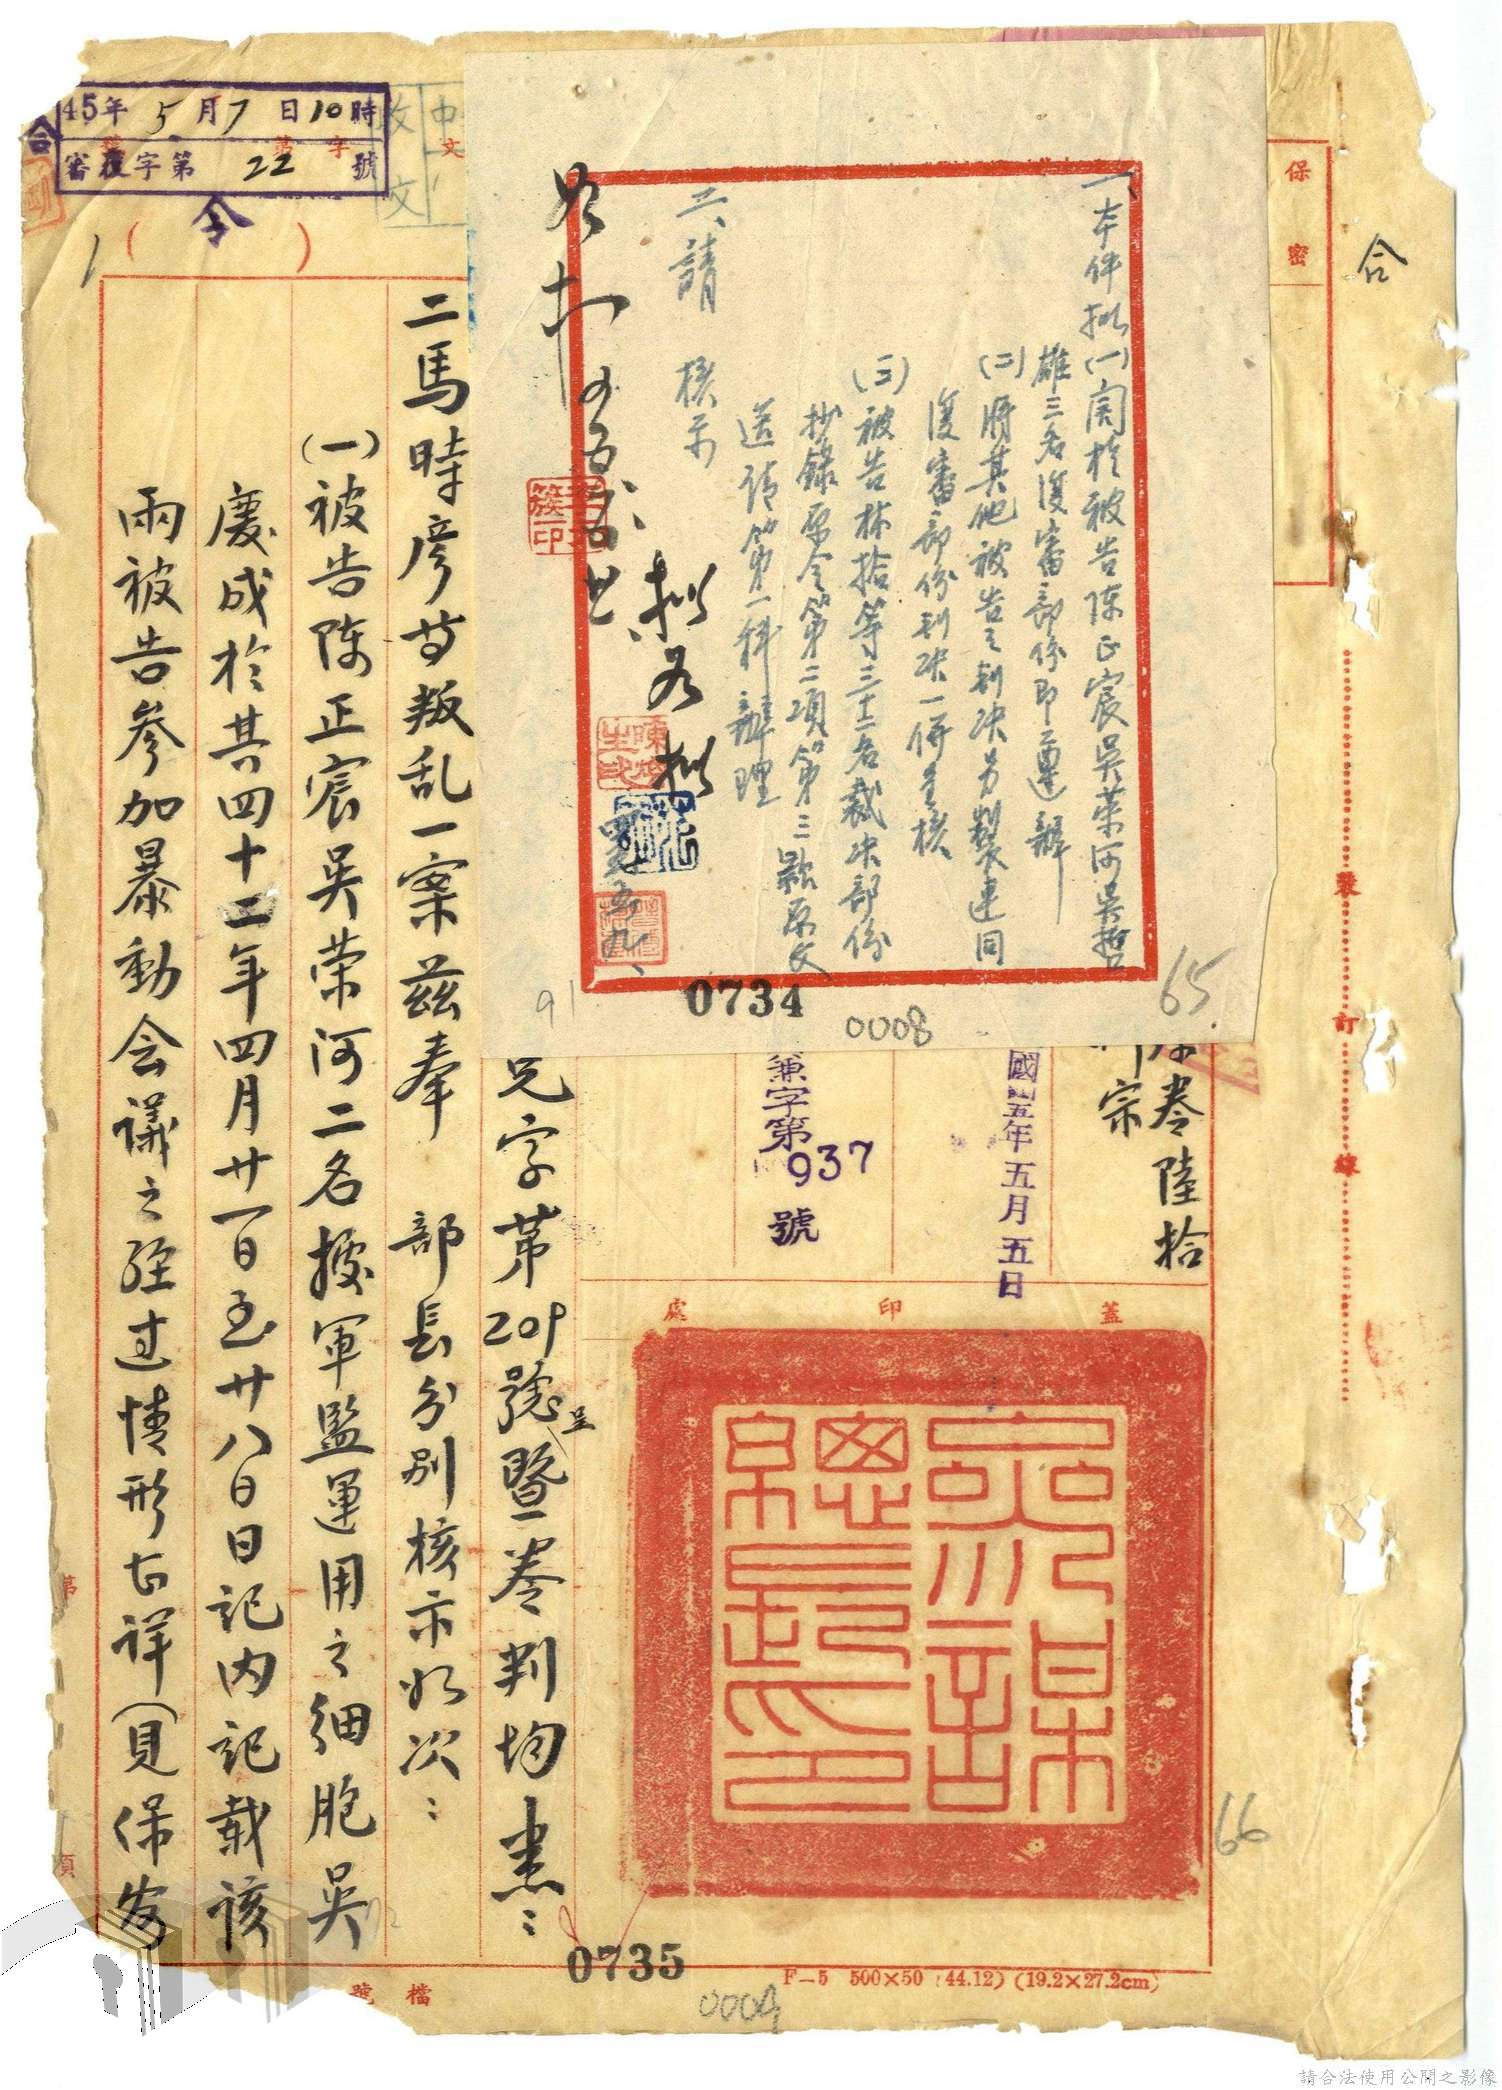 45年5月7日10時
審覆字第22號
(令)
保密
合
一、本件擬(一)関於被告陳正宸吳榮河吳哲
雄三名復審部份即遵辦
(二)將其他被告之判決另製連同
復審部份判決一併呈核
(三)被告林拾等三十一名裁决部係
抄錄原令第二項第三款原文
送請第一科辦理
二、請
核示
擬如擬
如擬
0734
0008
65
91
原卷陸拾
宗
國四五年五月五日
兼字第937號
蓋印處
參謀總長印
兄字第209號呈暨卷判均悉:
二馬時彥等叛乱一案茲奉 部長分別核示如次:
(一)被告陈正宸吳荣河二名據軍監運用之細胞吳
慶成於其四十二年四月廿一日至廿八日日記内記載該
兩被告參加暴動会議之經过情形甚详(見保安
裝訂線
66
0735
0009
F—5 500×50 (44.12) (19.2×27.2cm)
檔號
第
頁
請合法使用公開之影像